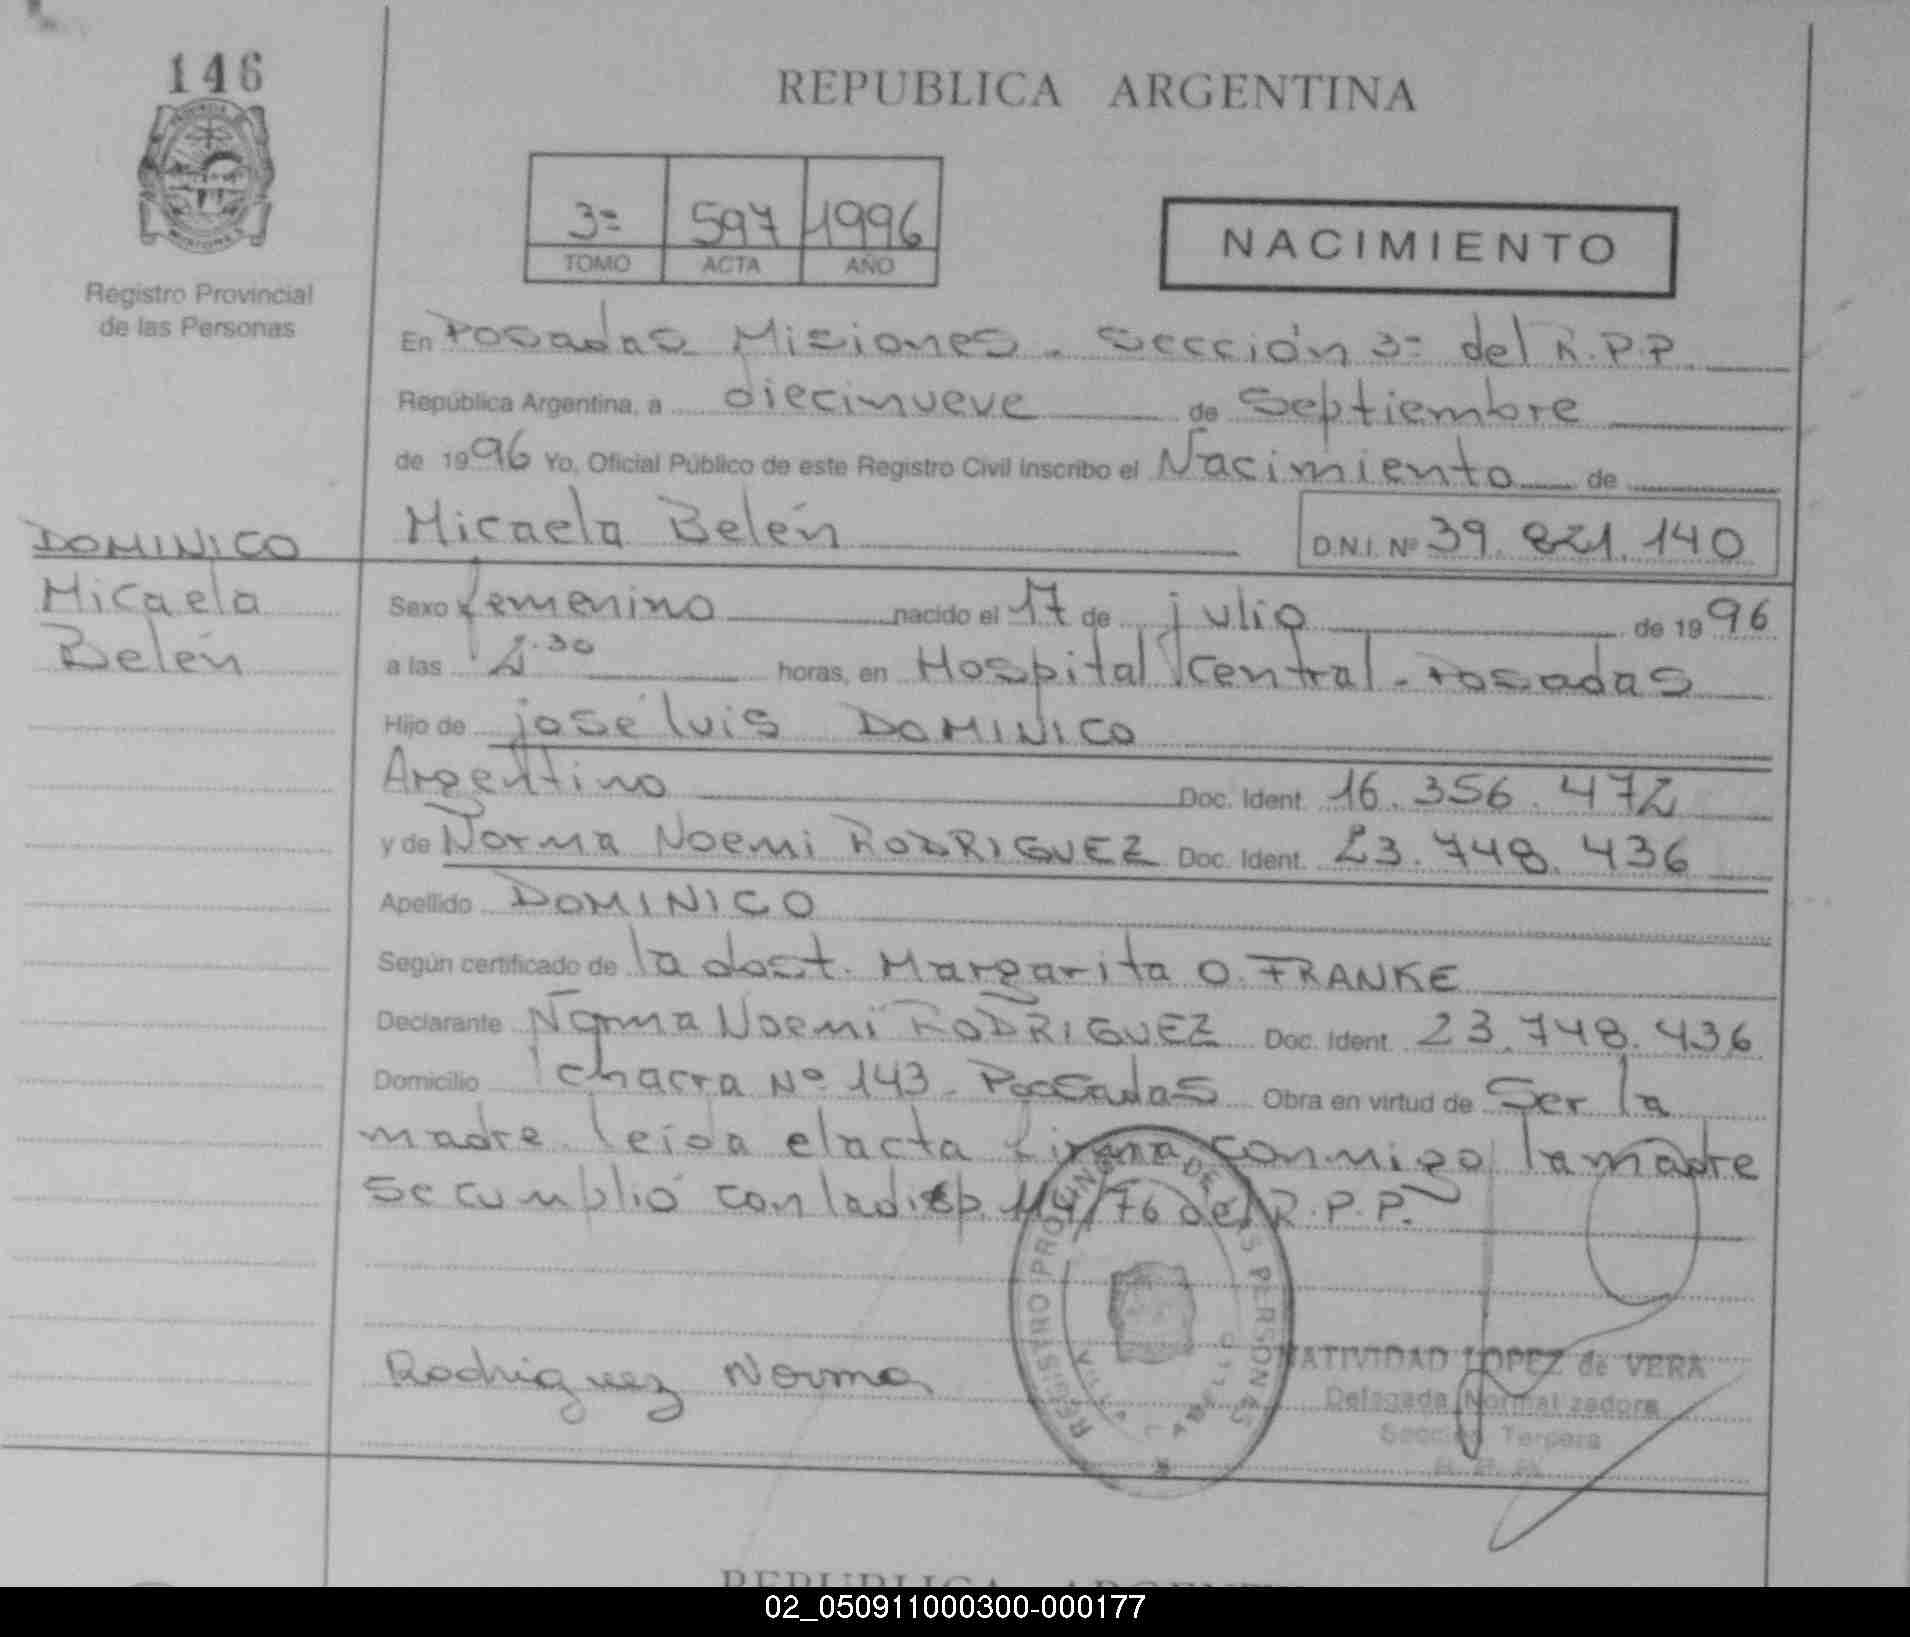 146
REPUBLICA ARGENTINA
3=
597
1996
TOMO ACTA AÑO
NACIMIENTO
Registro Provincial
de las Personas
En Posadas Misiones - Sección 3= del R.P.P.
República Argentina, a diecinueve de Septiembre
de 1996 Yo, Oficial Público de este Registro Civil inscribo el Nacimiento de
Micaela Belén D.N.I. Nº 39.821.140
DOMINICO
Micaela
Belén
Sexo femenino nacido el 17 de julio de 1996
a las 2.30 horas, en Hospital Central - Posadas
Hijo de josé luis DOMINICO
Argentino Doc. Ident. 16.356.472
y de Norma Noemi RODRIGUEZ Doc. Ident. 23.748.436
Apellido DOMINICO
Según certificado de la dost. Margarita O. FRANKE
Declarante Norma Noemi RODRIGUEZ Doc. Ident. 23.748.436
Domicilio chacra Nº 143 - Posadas Obra en virtud de Ser la
madre leída el acta firma conmigo la madre
Se cumplió con la disp. 114/76 del R.P.P.
REGISTRO PROVINC DE LAS PERSONAS
Rodriguez Norma
NATIVIDAD LOPEZ de VERA
Delegada Normalizadora
Sección Tercera
REPUBLICA ARGENTINA
02_050911000300-000177